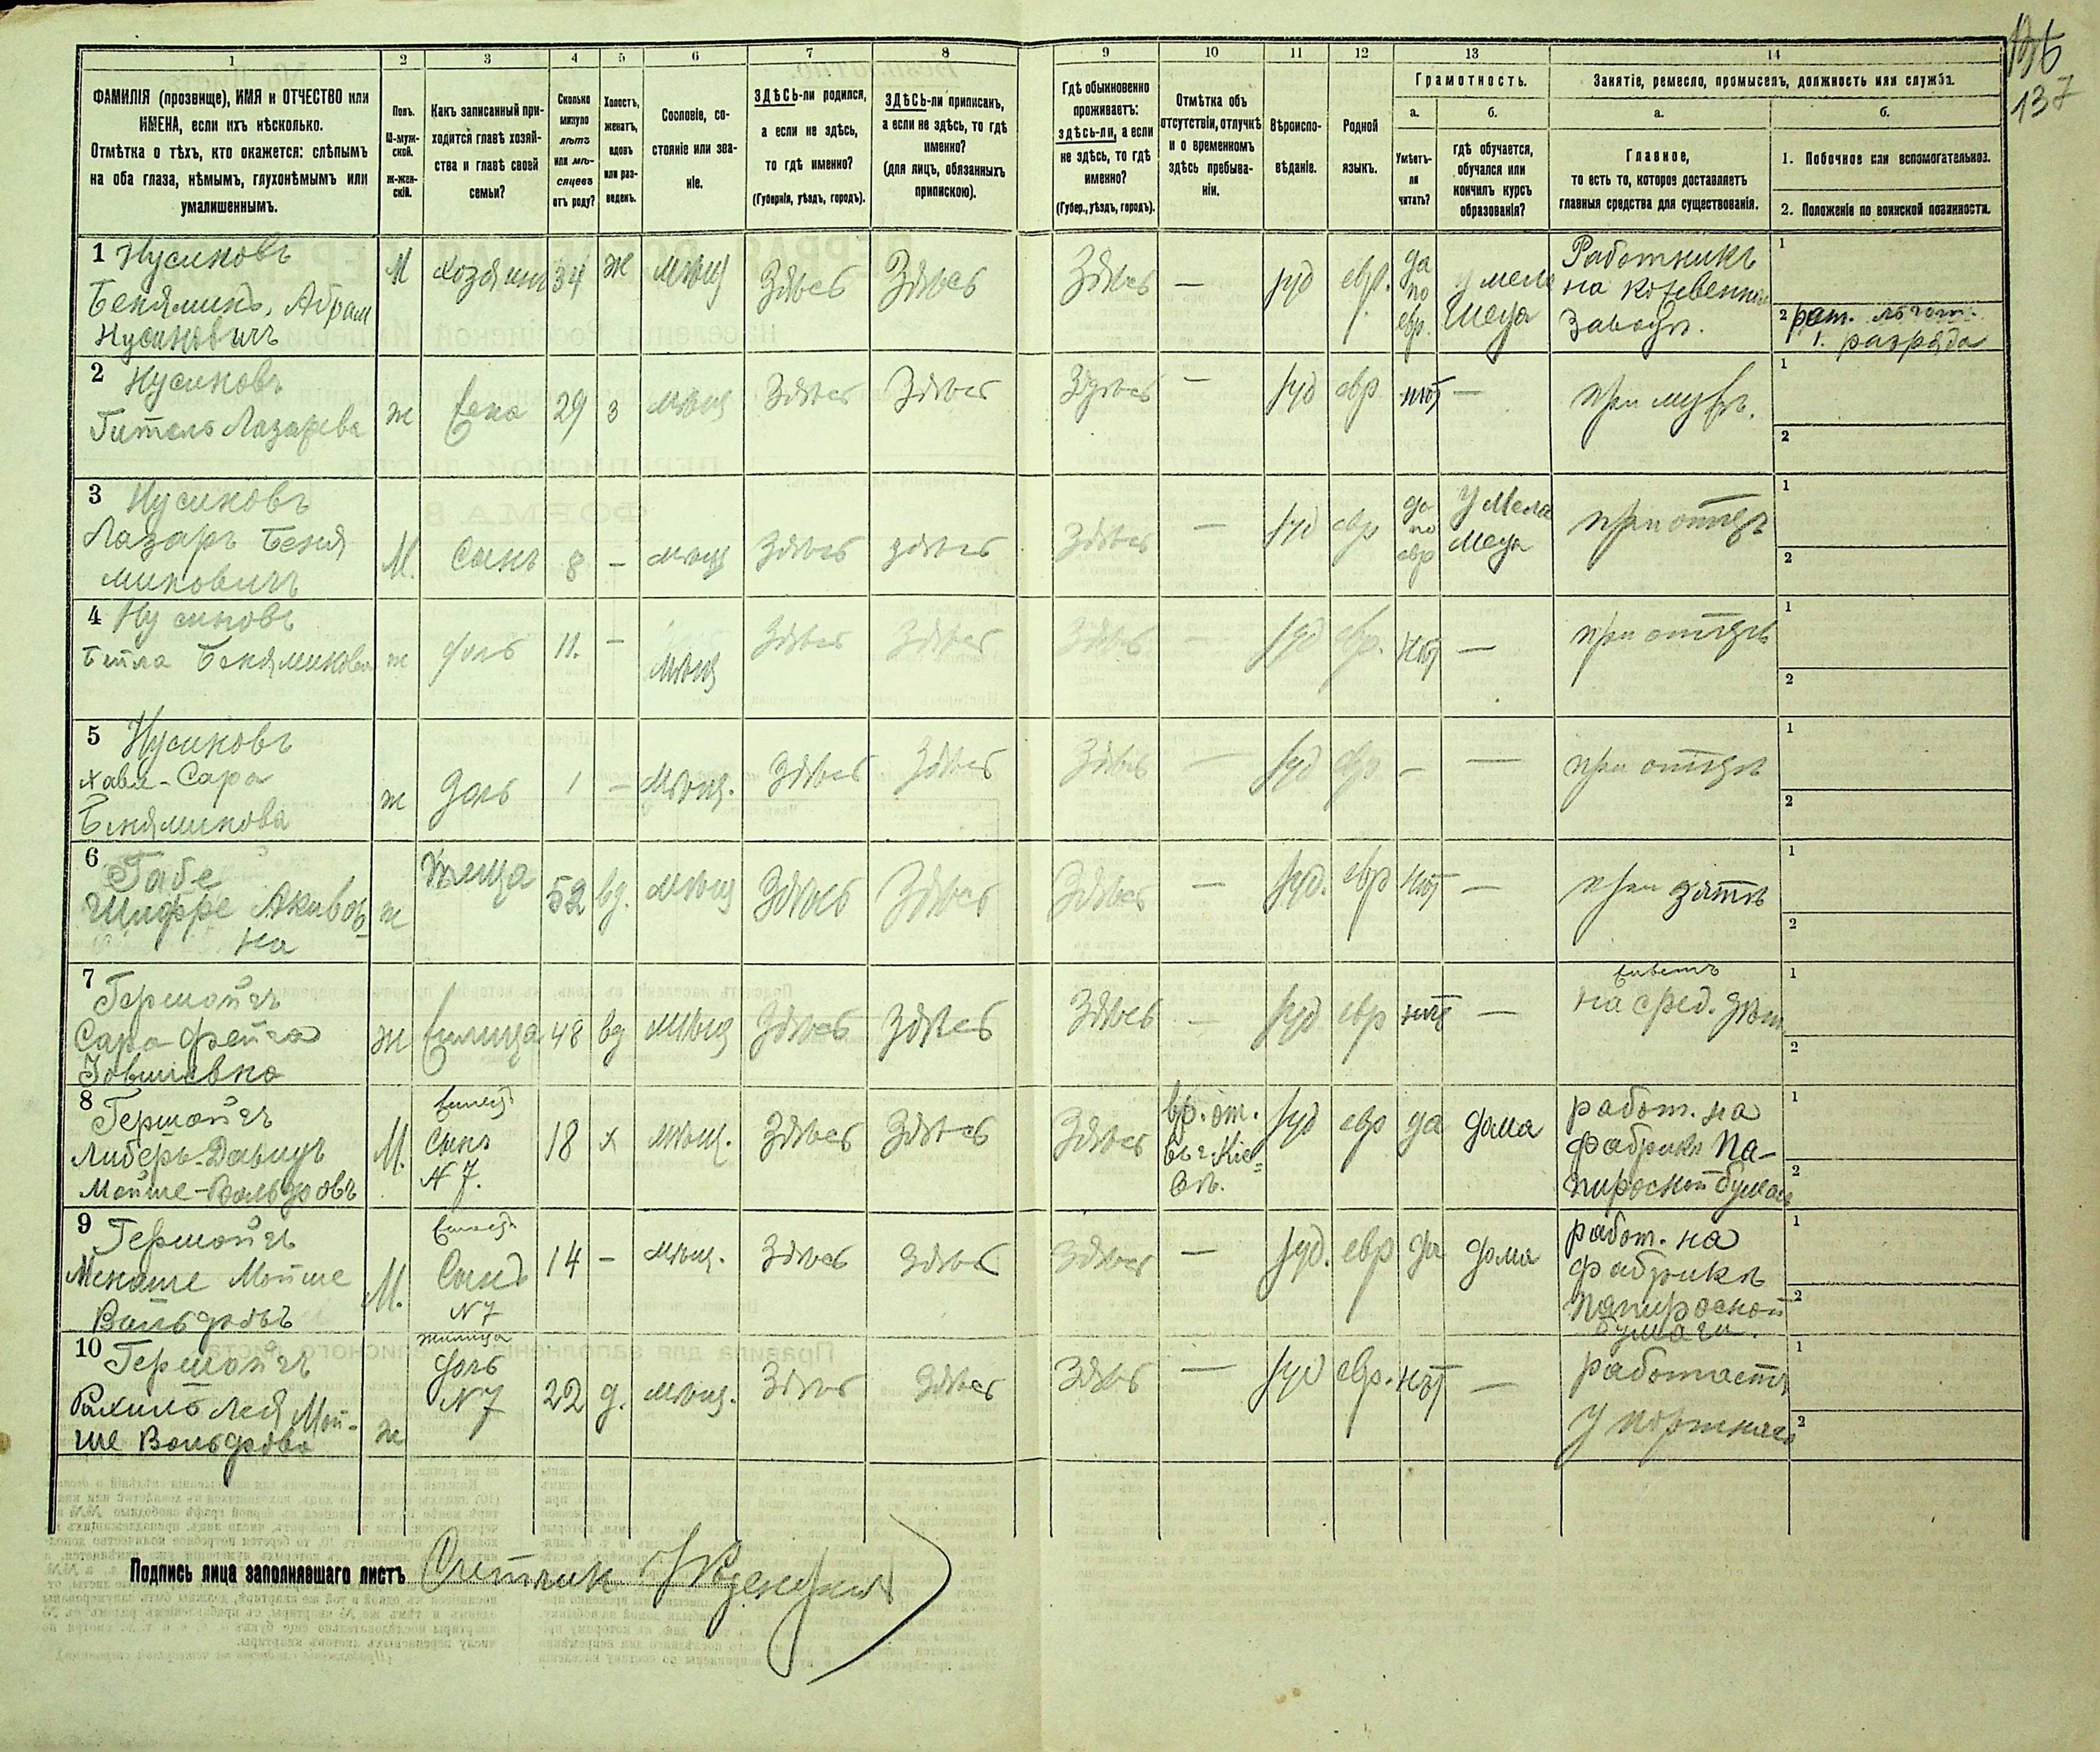 136
137
1 2 3 4 5 6 7 8 9 10 11 12 13 14
ФАМИЛІЯ (прозвище), ИМЯ и ОТЧЕСТВО или
ИМЕНА, если ихъ нѣсколько.
Отмѣтка о тѣхъ, кто окажется: слѣпымъ
на оба глаза, нѣмымъ, глухонѣмымъ или
умалишеннымъ.
Полъ.
М-муж-
ской.
Ж-жен-
скій.
Какъ записанный при-
ходится главѣ хозяй-
ства и главѣ своей
семьи?
Сколько
минуло
лѣтъ
или мѣ-
сяцевъ
отъ роду?
Холостъ,
женатъ,
вдовъ
или раз-
веденъ.
Сословіе, со-
стояніе или зва-
ніе.
ЗДѢСЬ-ли родился,
а если не здѣсь,
то гдѣ именно?
(Губернія, уѣздъ, городъ).
ЗДѢСЬ-ли приписанъ,
а если не здѣсь, то гдѣ
именно?
(для лицъ, обязанныхъ
припискою).
Гдѣ обыкновенно
проживаетъ:
здѣсь-ли, а если
не здѣсь, то гдѣ
именно?
(Губер., уѣздъ, городъ).
Отмѣтка объ
отсутствіи, отлучкѣ
и о временномъ
здѣсь пребыва-
ніи.
Вѣроиспо-
вѣданіе.
Родной
языкъ.
Грамотность.
а.
Умѣетъ-
ли
читать?
б.
гдѣ обучается,
обучался или
кончилъ курсъ
образованія?
Занятіе, ремесло, промыселъ, должность или служба.
а.
Главное,
то есть то, которое доставляетъ
главныя средства для существованія.
б.
1. Побочное или вспомогательное.
2. Положеніе по воинской повинности.
1 Нусиновъ
Беньяминъ, Абрам
Нусиновичъ
М хозяинъ 34 ж мѣщ Здѣсь Здѣсь Здѣсь — іуд евр. да по евр. у меламеда
Работникъ
на кожевенном
заводѣ.
1
2 рат. ... 1. разряда
2 Нусиновъ
Гитель Лазарева
ж жена 29 з мѣщ Здѣсь Здѣсь Здѣсь — іуд евр нѣт — при мужѣ.
1
2
3 Нусиновъ
Лазарь Беня
миновичъ
М. Сынъ 8 — мѣщ Здѣсь здѣсь Здѣсь — іуд евр да по евр у Меламеда при отцѣ
1
2
4 Нусиновъ
Бейла Беняминова
ж дочь 11. — мѣщ Здѣсь Здѣсь Здѣсь — іуд евр. нѣт — при отцѣ
1
2
5 Нусиновъ
Хава-Сара
Беняминова
ж дочь 1 — мѣщ. Здѣсь Здѣсь Здѣсь — іуд евр — — при отцѣ
1
2
6 Габе
Шифре Акивов-
на
ж теща 52 вд. мѣщ Здѣсь Здѣсь Здѣсь — іуд. евр нѣт — при зятѣ
1
2
7 Гершойгъ
Сара Фейга
Іовшіевна
ж жилица 48 вд мѣщ Здѣсь Здѣсь Здѣсь — іуд евр нѣт —
живетъ
на сред. дѣт
1
2
8 Гершойгъ
Либеръ-Давидъ
Мойше-Вольфовъ
М. жилец Сынъ N 7. 18 х мѣщ. Здѣсь Здѣсь Здѣсь
вр. от.
въ г. Кіе-
вѣ.
іуд евр да дома
работ. на
фабрикѣ Па-
пиросной бумаги
1
2
9 Гершойгъ
Менаше Мойше
Вольфовъ
М. жилец Сынъ N 7 14 — мѣщ. Здѣсь Здѣсь Здѣсь — іуд. евр да дома
работ. на
фабрикѣ
папиросной
бумаги.
1
2
10 Гершойгъ
Рахиль Лея Мой-
ше Вольфова
ж жилица дочь N 7 22 д. мѣщ. Здѣсь Здѣсь Здѣсь — іуд евр. нѣт —
работаетъ
у портного
1
2
Подпись лица заполнявшаго листъ Счетчик